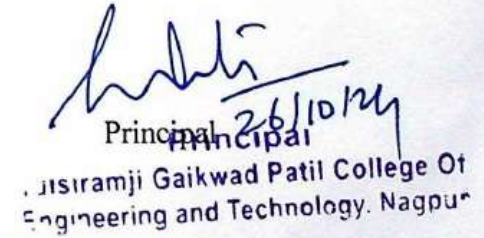 26/10/24
Principal
Principal
Gaikwad Patil College Of
Engineering and Technology. Nagpur